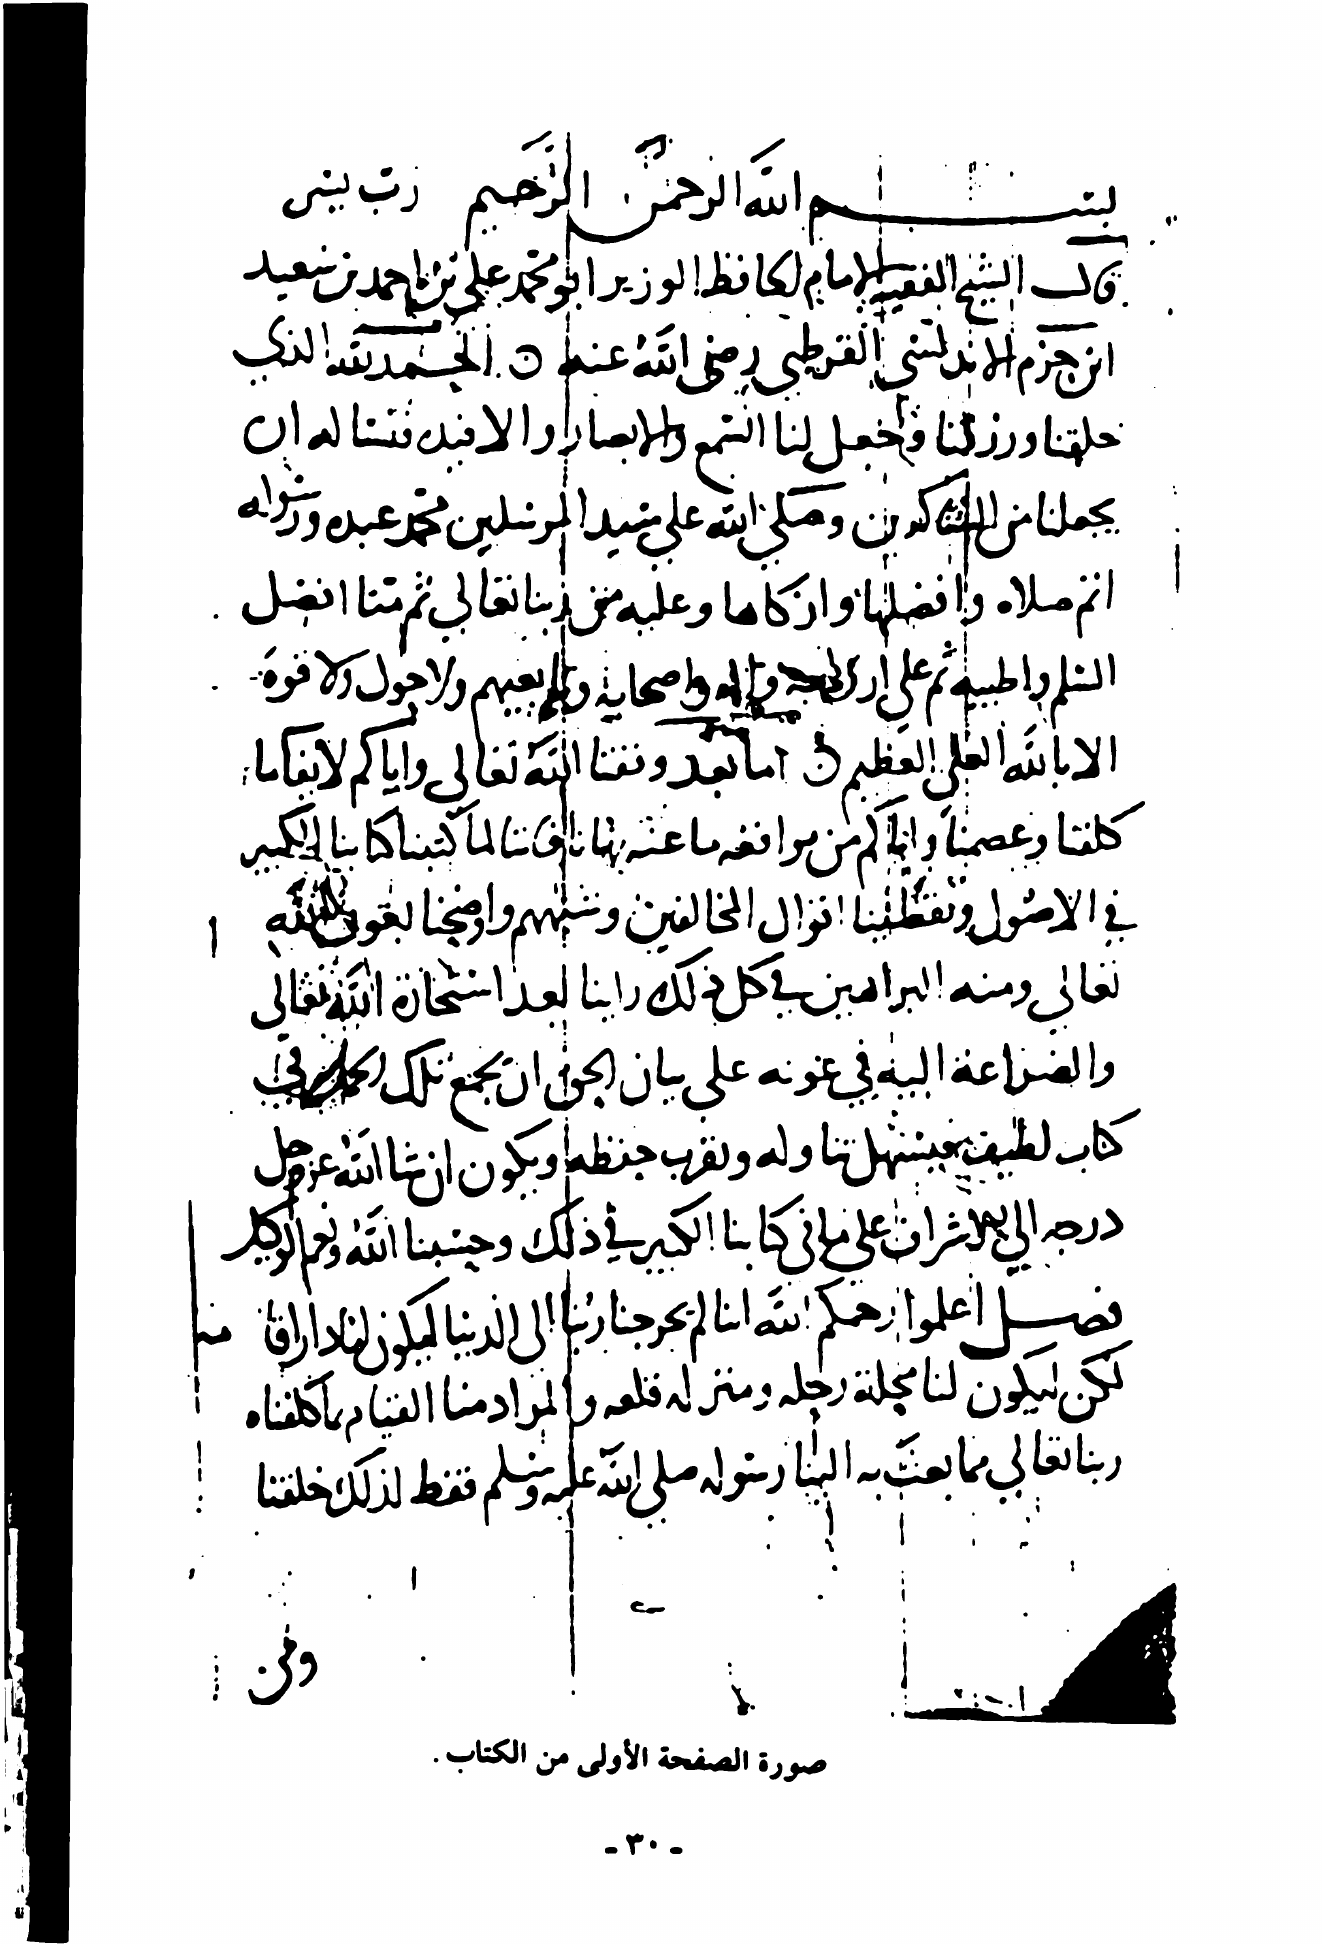 بسم الله الرحمن الرحيم رب يسر
قال الشيخ الفقيه الامام الحافظ الوزير ابو محمد علي بن احمد بن سعيد
ابن حزم الاندلسي القرطبي رضي الله عنه ن الحمد لله الذي
خلقنا ورزقنا وجعل لنا السمع والابصار والافئده نسئاله ان
يجعلنا من الشاكرين وصلى الله علي سيد المرسلين محمد عبده ورسوله
اتم صلاه وافضلها وازكاها وعليه من ربنا تعالي ثم منا افضل
السلم واطيبه ثم علي ازواجه واله واصحابه وتابعيهم ولا حول ولا قوة
الا بالله العلي العظيم ن اما بعد وفقنا الله تعالي واياكم لانفاذ ما
كلفنا وعصمنا واياكم من مواقعه ما عنه نهانا فاننا لما كتبنا كتابنا الكبير
في الاصول وتقصينا اقوال المخالفين وشبههم واوضحنا بعون الله
تعالى ومنه البراهين في كل ذلك راينا بعد استخارة الله تعالى
والضراعة اليه في عونه على بيان الحق ان نجمع تلك الجمل في
كتاب لطيف يسهل تناوله ويقرب حفظه ويكون ان شا الله عز وجل
درجه الي الاشراف علي ما في كتابنا الكبير في ذلك وحسبنا الله ونعم الوكيل
فصل اعلموا رحمكم الله اننا لم يخرجنا ربنا الى الدنيا لتكون لنا دار اقا
مه
لكن لتكون لنا محلة رحله ومنزله قلعه والمراد منا القيام بما كلفناه
ربنا تعالي مما بعث به الينا رسوله صلى الله عليه وسلم فقط لذلك خلقنا
ومن
صورة الصفحة الأولى من الكتاب .
- ٣٠ -